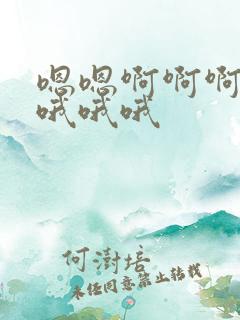 嗯嗯啊啊啊
哦哦哦
何澍培
未经同意禁止转载